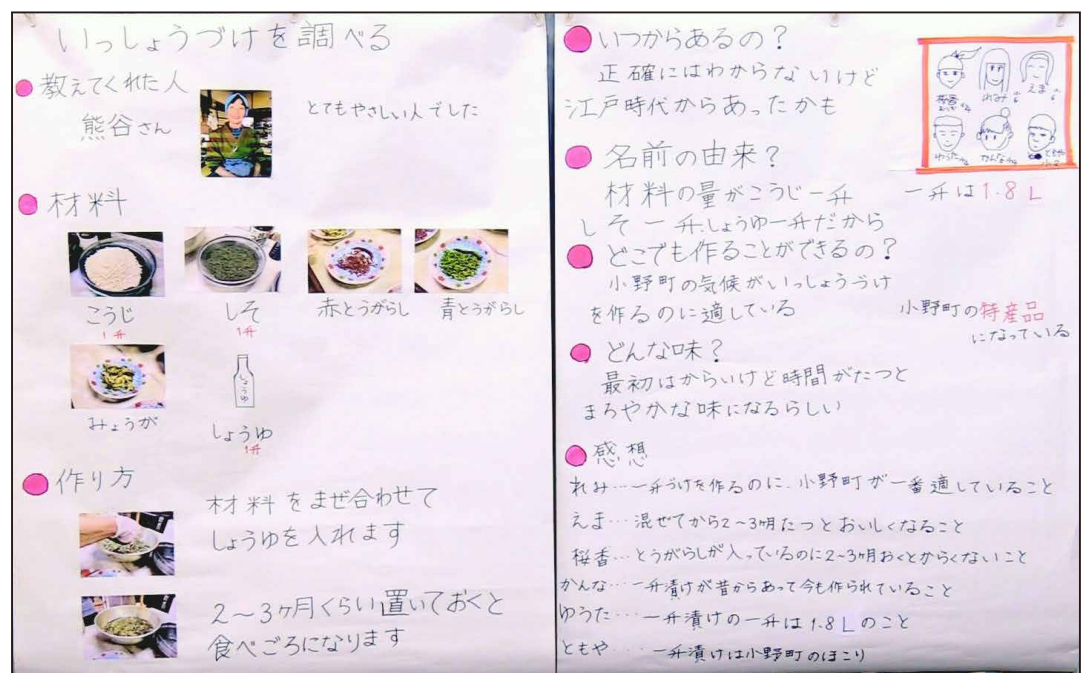 いっしょうづけを調べる
教えてくれた人
熊谷さん
とてもやさしい人でした
材料
こうじ
1升
しそ
1升
赤とうがらし
青とうがらし
みょうが
しょうゆ
しょうゆ
1升
作り方
材料をまぜ合わせて
しょうゆを入れます
2~3ヶ月くらい置いておくと
食べごろになります
いつからあるの?
正確にはわからないけど
江戸時代からあったかも
れみ
えま
ゆうた
かんな
ともや
名前の由来?
材料の量がこうじ一升
しそ一升しょうゆ一升だから
一升は1.8L
どこでも作ることができるの?
小野町の気候がいっしょうづけ
を作るのに適している
小野町の特産品
になっている
どんな味?
最初はからいけど時間がたつと
まろやかな味になるらしい
感想
れみ…一升づけを作るのに、小野町が一番適していること
えま…混ぜてから2~3ヶ月たつとおいしくなること
桜香…とうがらしが入っているのに2~3ヶ月おくとからくないこと
かんな…一升漬けが昔からあって今も作られていること
ゆうた…一升漬けの一升は1.8Lのこと
ともや…一升漬けは小野町のほこり